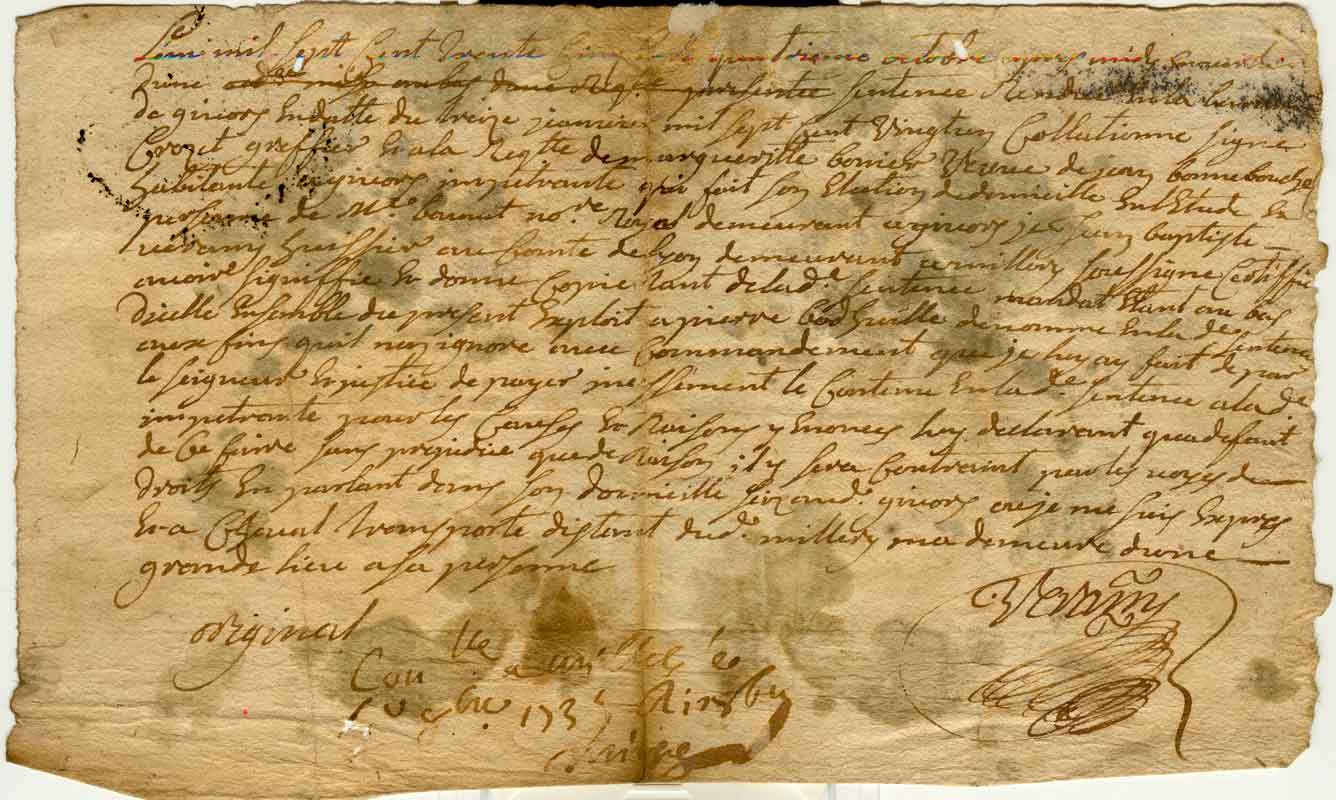 L'an mil sept cent trente cinq le quatrieme octobre apres midy
d'une presentee sentence Rendue en la
de givors En datte du treize janvier mil sept cent vingt Collationne signe
Crozet greffier Et a la Reqte de marguerite bonier veuve de jean bonnebouche
habitante a givors impetrante qui fait son Election de domicille En L'Etude Et
personne de Me no.re Royal demeurant a givors je jean baptiste
Veramy huissier au Comte de Lyon demeurant a millery soussigne Certiffie
avoir signiffie Et donne Copie tant de lad. sentence mandat Etant au bas
d'icelle Ensemble du present Exploit a pierre denomme En lad. sentence
aux fins quil n'en ignore avec Commandement que je luy ay fait de par
le seigneur En justice de payer incessament le Contenu En lad.e sentence a lad.e
impetrante pour les Causes Et Raisons y Enoncees luy declarant qua defaut
de Ce faire sans prejudice que de Raison il y sera Contraint par les voyes de
droits En parlant dans son domicille aud. givors ou je me suis Expres
Et a Cheval transporte distant dud. millery ma demeure d'une
grande lieue a sa personne
original
Veramy
Con.lle a
1735